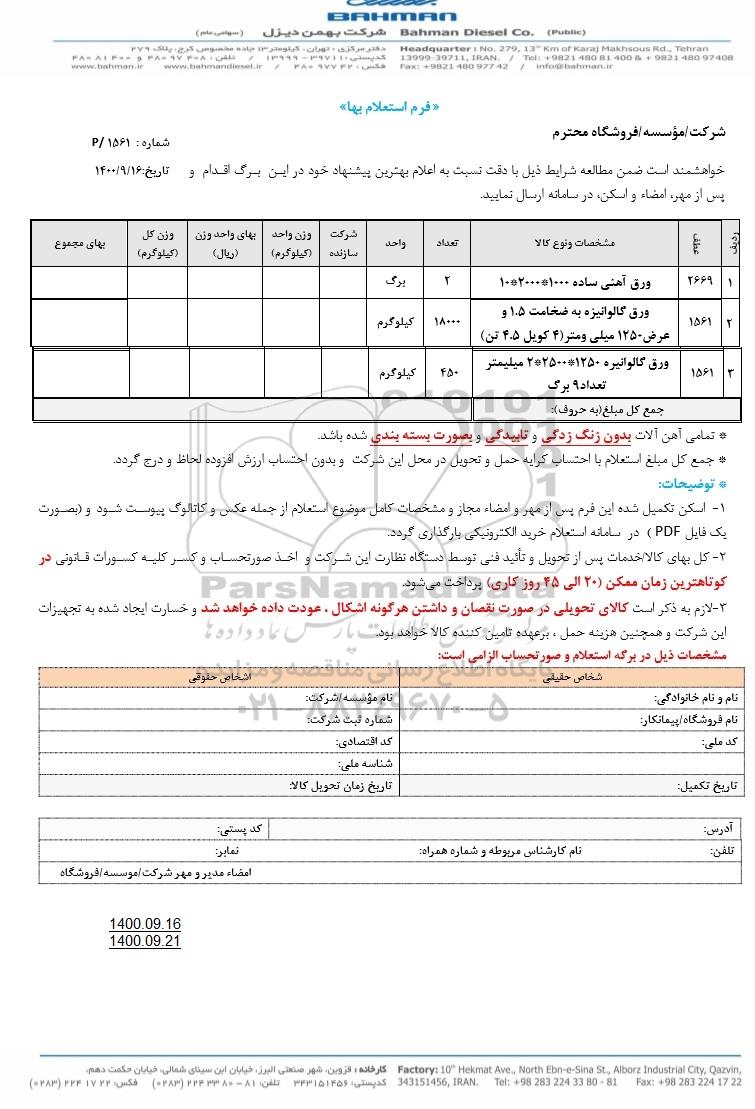 BAHMAN
شرکت بهمن دیزل (سهامی عام) Bahman Diesel Co. (Public)
دفتر مرکزی: تهران، کیلومتر ۱۳ جاده مخصوص کرج، پلاک ۲۷۹
کدپستی: ۳۹۷۱۱-۱۳۹۹۹ / تلفن: ۴۸۰ ۹۷ ۴۰۸ و ۴۰۰ ۸۱ ۴۸۰
فکس: ۴۲ ۹۷۷ ۴۸۰ / www.bahmandiesel.ir / www.bahman.ir
Headquarter: No. 279, 13th Km of Karaj Makhsous Rd., Tehran
13999-39711, IRAN. / Tel: +9821 480 81 400 & + 9821 480 97408
Fax: +9821 480 977 42 / info@bahman.ir
«فرم استعلام بها»
شرکت/مؤسسه/فروشگاه محترم
شماره: P/ ۱۵۶۱
خواهشمند است ضمن مطالعه شرایط ذیل با دقت نسبت به اعلام بهترین پیشنهاد خود در این برگ اقدام و
تاریخ:۱۴۰۰/۹/۱۶
پس از مهر، امضاء و اسکن، در سامانه ارسال نمایید.
ردیف عطف مشخصات ونوع کالا تعداد واحد شرکت سازنده وزن واحد (کیلوگرم) بهای واحد وزن (ریال) وزن کل (کیلوگرم) بهای مجموع
۱ ۲۶۶۹ ورق آهنی ساده ۱۰۰۰*۲۰۰۰*۱۰ ۲ برگ
۲ ۱۵۶۱ ورق گالوانیزه به ضخامت ۱.۵ و عرض۱۲۵۰ میلی ومتر(۴ کویل ۴.۵ تن) ۱۸۰۰۰ کیلوگرم
۳ ۱۵۶۱ ورق گالوانیزه ۱۲۵۰*۲۵۰۰*۲ میلیمتر تعداد۹ برگ ۴۵۰ کیلوگرم
جمع کل مبلغ(به حروف):
* تمامی آهن آلات بدون زنگ زدگی و تابیدگی و بصورت بسته بندی شده باشد.
* جمع کل مبلغ استعلام با احتساب کرایه حمل و تحویل در محل این شرکت و بدون احتساب ارزش افزوده لحاظ و درج گردد.
* توضیحات:
۱- اسکن تکمیل شده این فرم پس از مهر و امضاء مجاز و مشخصات کامل موضوع استعلام از جمله عکس و کاتالوگ پیوست شود و (بصورت
یک فایل PDF ) در سامانه استعلام خرید الکترونیکی بارگذاری گردد.
۲- کل بهای کالا/خدمات پس از تحویل و تأئید فنی توسط دستگاه نظارت این شرکت و اخذ صورتحساب و کسر کلیه کسورات قانونی در
کوتاهترین زمان ممکن (۲۰ الی ۴۵ روز کاری) پرداخت می‌شود.
۳-لازم به ذکر است کالای تحویلی در صورت نقصان و داشتن هرگونه اشکال ، عودت داده خواهد شد و خسارت ایجاد شده به تجهیزات
این شرکت و همچنین هزینه حمل ، برعهده تامین کننده کالا خواهد بود.
مشخصات ذیل در برگه استعلام و صورتحساب الزامی است:
شخاص حقیقی اشخاص حقوقی
نام و نام خانوادگی: نام مؤسسه/شرکت:
نام فروشگاه/پیمانکار: شماره ثبت شرکت:
کد ملی: کد اقتصادی:
شناسه ملی:
تاریخ تکمیل: تاریخ زمان تحویل کالا:
آدرس: کد پستی:
تلفن: نام کارشناس مربوطه و شماره همراه: نمابر:
امضاء مدیر و مهر شرکت/موسسه/فروشگاه
1400.09.16
1400.09.21
کارخانه: قزوین، شهر صنعتی البرز، خیابان ابن سینای شمالی، خیابان حکمت دهم،
کدپستی: ۳۴۳۱۵۱۴۵۶ تلفن: ۸۱ - ۸۰ ۳۳ ۲۲۴ (۰۲۸۳) فکس: ۲۲ ۱۷ ۲۲۴ (۰۲۸۳)
Factory: 10th Hekmat Ave., North Ebn-e-Sina St., Alborz Industrial City, Qazvin,
343151456, IRAN. Tel: +98 283 224 33 80 - 81 Fax: +98 283 224 17 22
ParsNamadData
پایگاه اطلاع رسانی مناقصه و مزایده
۰۲۱-۸۸۳۴۹۶۷۰-۵